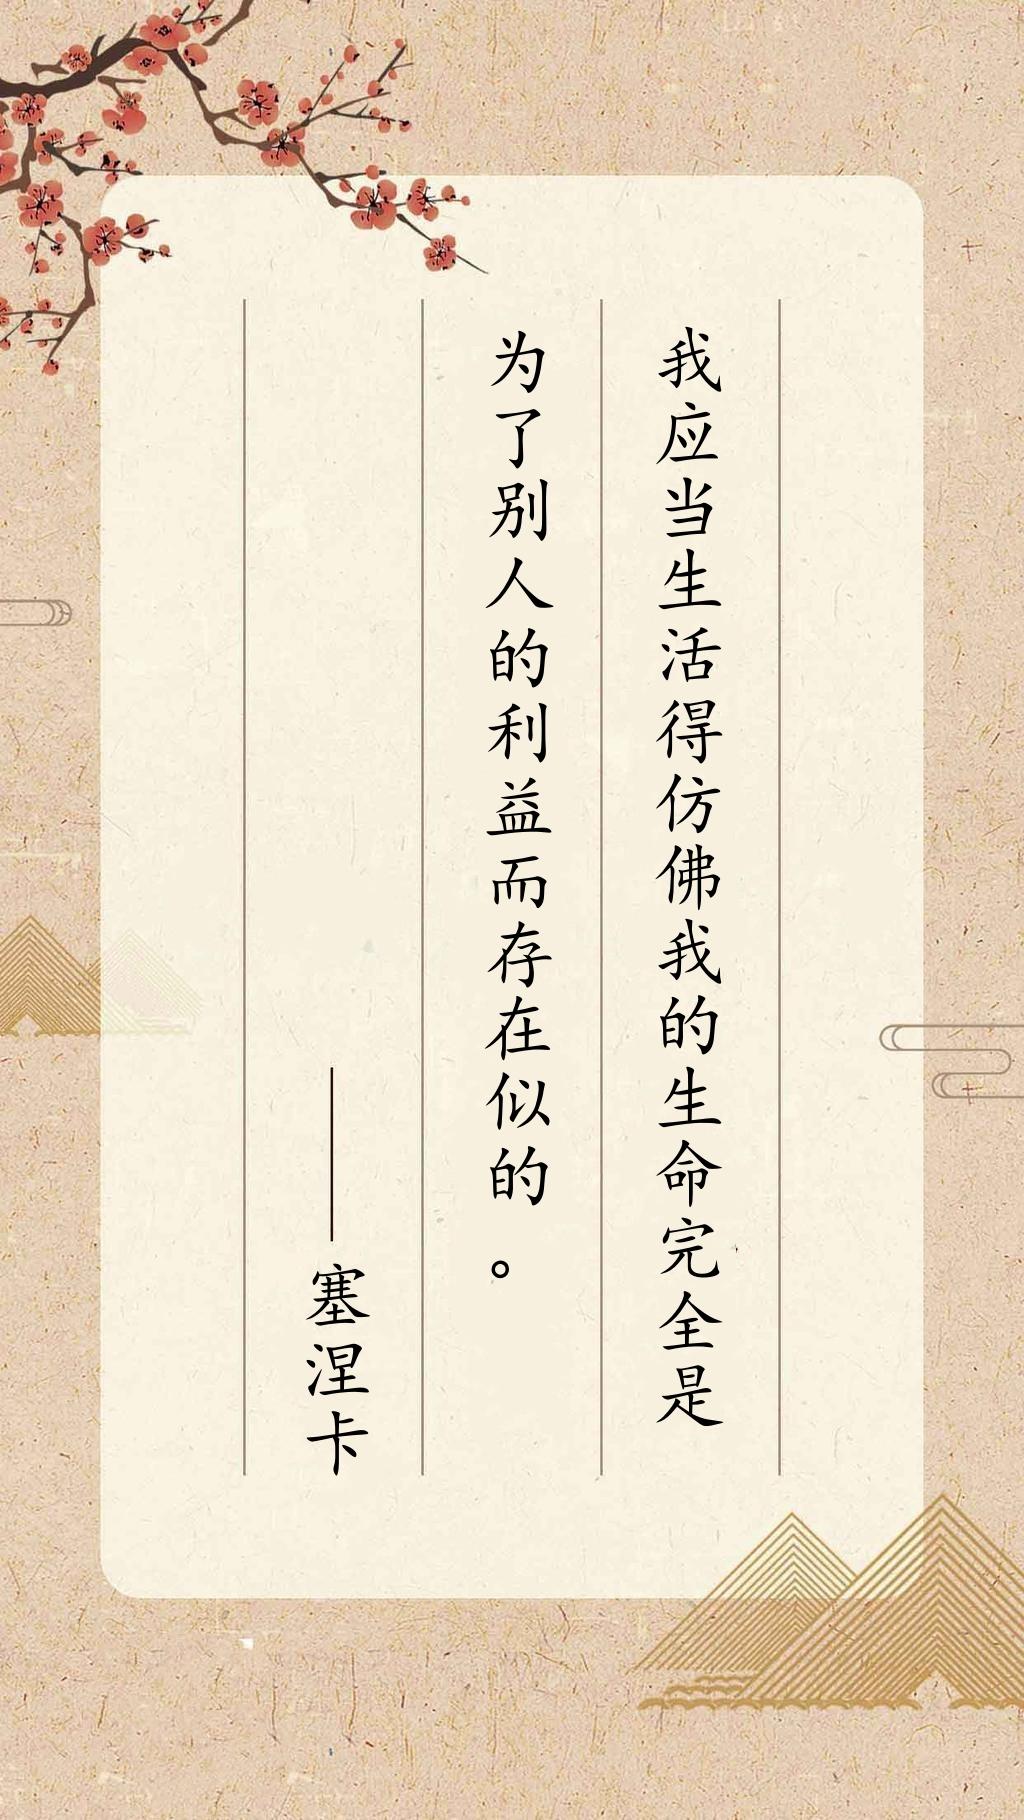 我应当生活得仿佛我的生命完全是
为了别人的利益而存在似的。
——塞涅卡